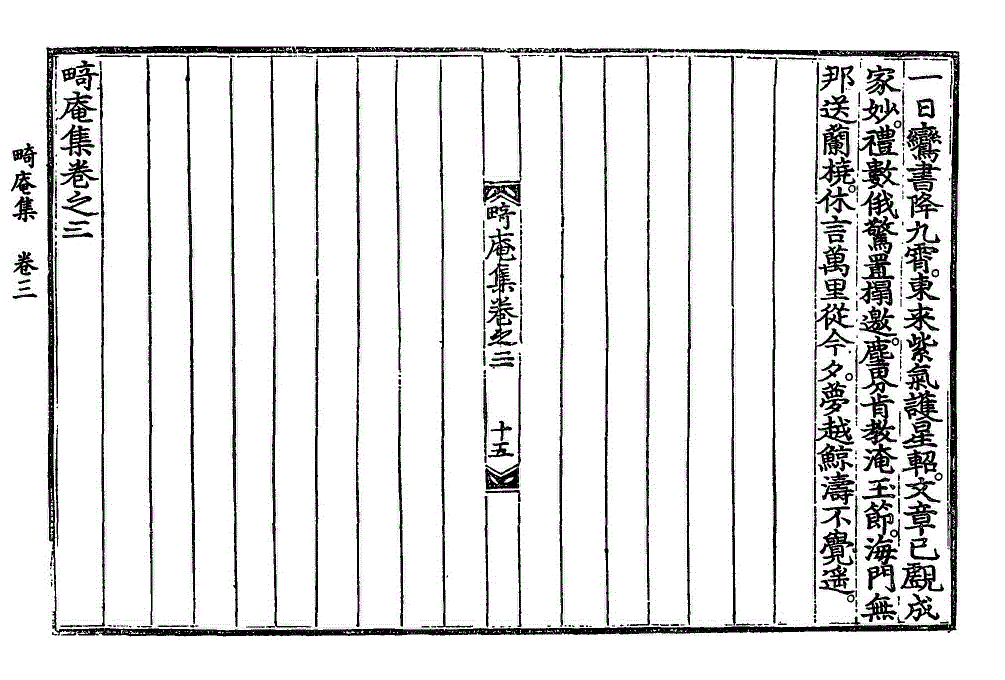 一日鸞書降九霄。東来紫氣護星軺。文章已覩成
家妙。禮數俄驚置榻邀。塵界肯教淹玉節。海門無
那送蘭橈。休言萬里從今夕。夢越鯨濤不覺遥。
畸庵集卷之三
十五
畸庵集卷之三
畸庵集 卷三